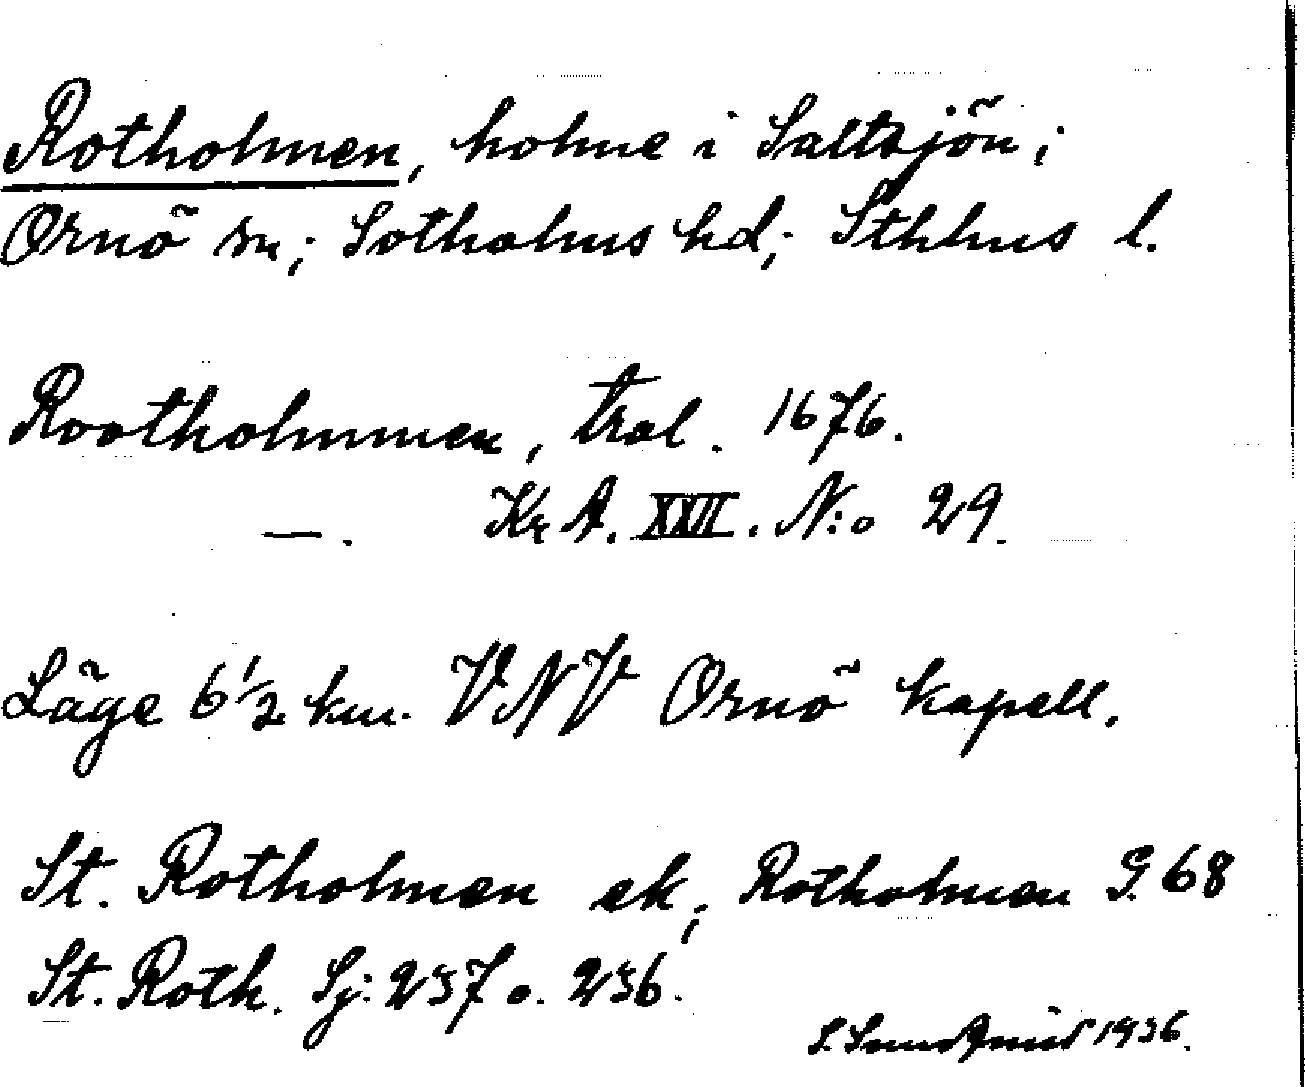 Rotholmen, holme i Saltsjön;
Ornö sn; Sotholms hd; Sthlms l.
Rootholmmen, tral. 1676.
—. Kr A. XXVII. N:o 29.
Läge 6 1/2 km. VNV Ornö kapell.
St. Rotholmen ek; Rotholmen G. 68
St. Roth. Sj: 237 o. 236.
S. 1936.